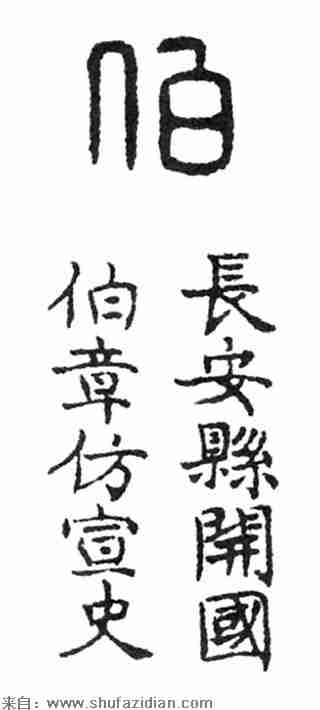 伯
長安縣開國
伯章仿宣史
来自：www.shufazidian.com